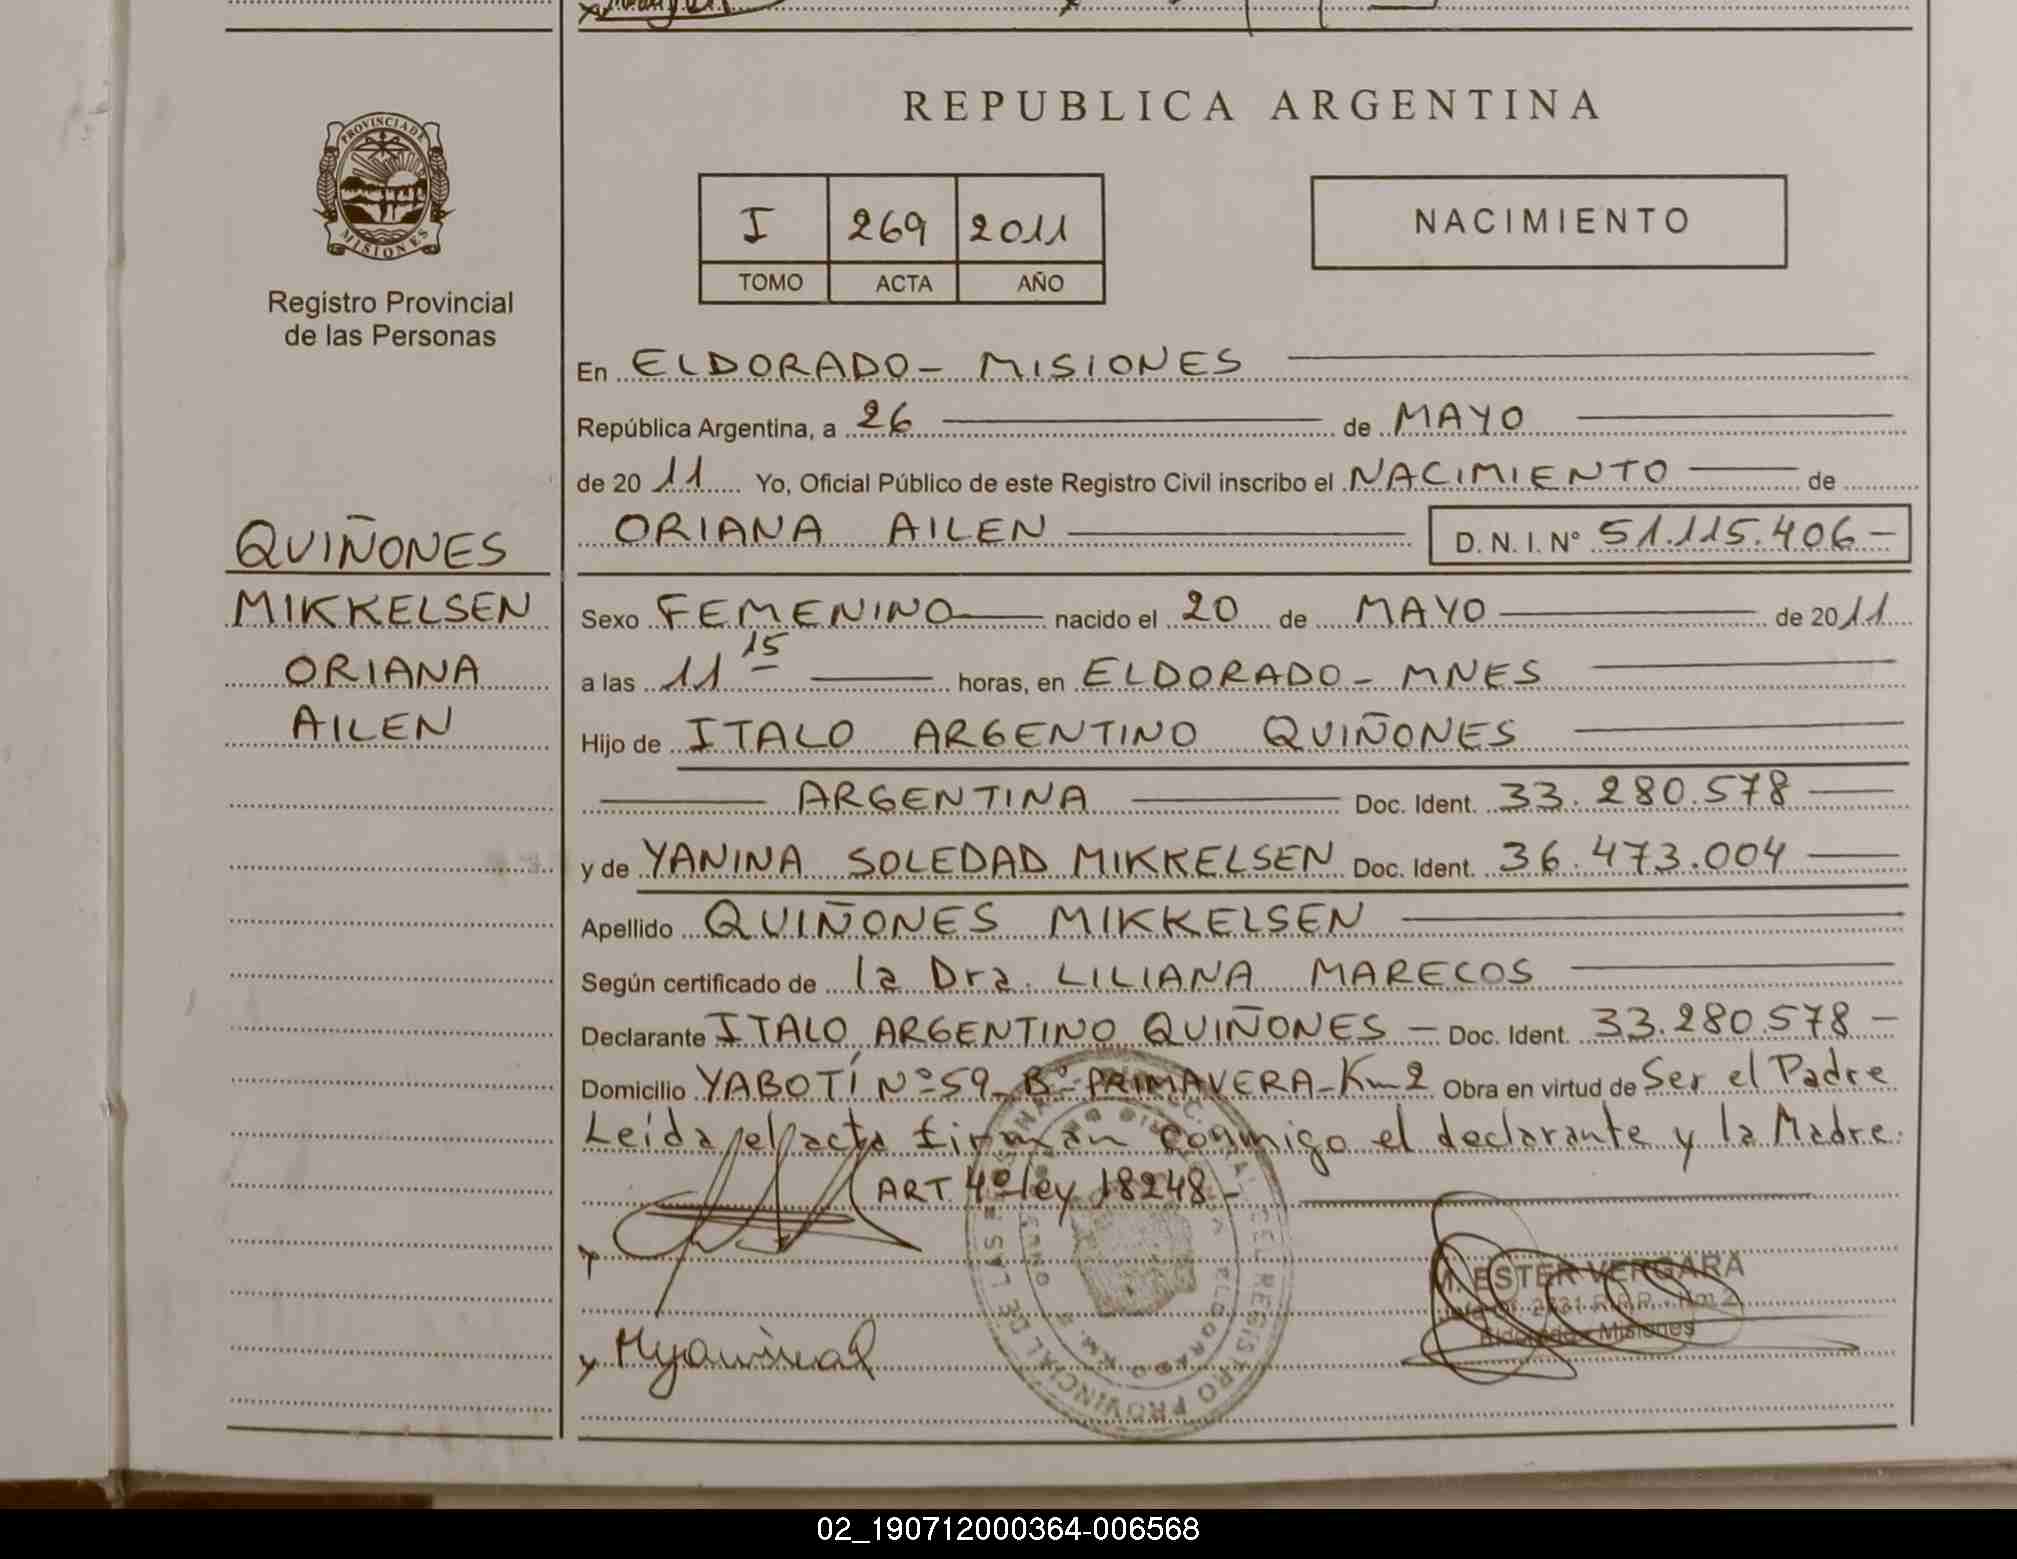 REPUBLICA ARGENTINA
PROVINCIA DE MISIONES
Registro Provincial
de las Personas
I 269 2011
TOMO ACTA AÑO
NACIMIENTO
En ELDORADO - MISIONES
República Argentina, a 26 de MAYO
de 20 11 Yo, Oficial Público de este Registro Civil inscribo el NACIMIENTO de
ORIANA AILEN D. N. I. N° 51.115.406-
QUIÑONES
MIKKELSEN
ORIANA
AILEN
Sexo FEMENINO nacido el 20 de MAYO de 2011
a las 11 15 horas, en ELDORADO - MNES
Hijo de ITALO ARGENTINO QUIÑONES
ARGENTINA Doc. Ident. 33.280.578
y de YANINA SOLEDAD MIKKELSEN Doc. Ident. 36.473.004
Apellido QUIÑONES MIKKELSEN
Según certificado de la Dra. LILIANA MARECOS
Declarante ITALO ARGENTINO QUIÑONES - Doc. Ident. 33.280.578 -
Domicilio YABOTÍ Nº 59 - Bº PRIMAVERA - Km 2 Obra en virtud de Ser el Padre
Leída el acta firman conmigo el declarante y la Madre.
ART. 4º ley 18248 -
M. ESTER VERGARA
Eldorado - Misiones
02_190712000364-006568